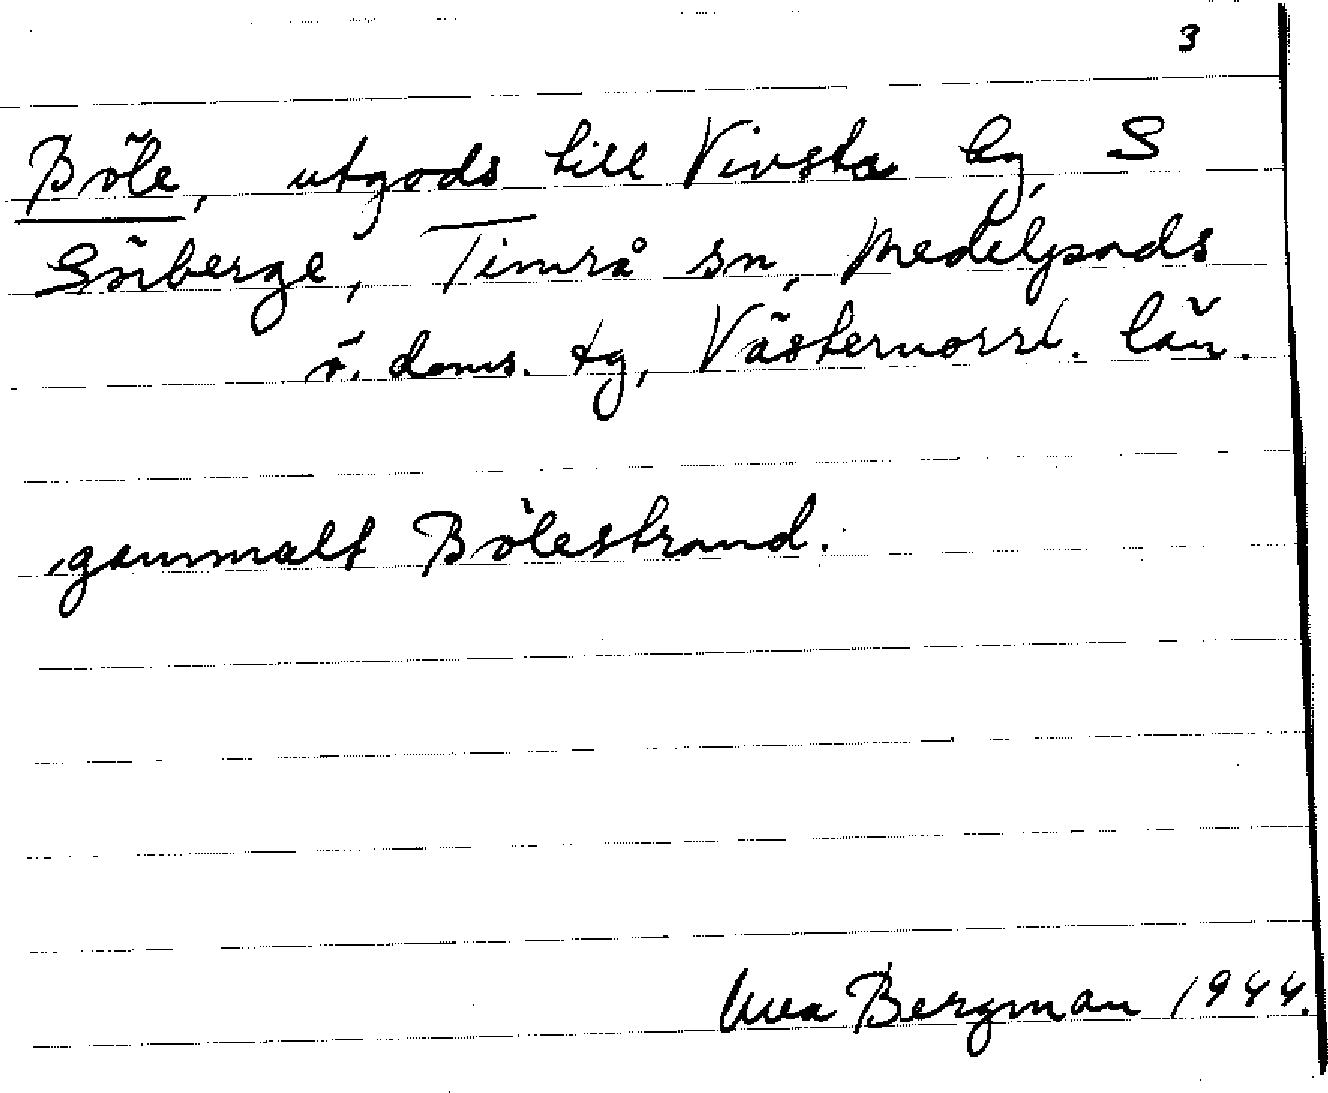 3
Böle, utgods till Vivsta by, S
Sörberge, Timrå sn, Medelpads
ö. doms. tg, Västernorrl. län.
gammalt Bölestrand.
Bergman 1944.